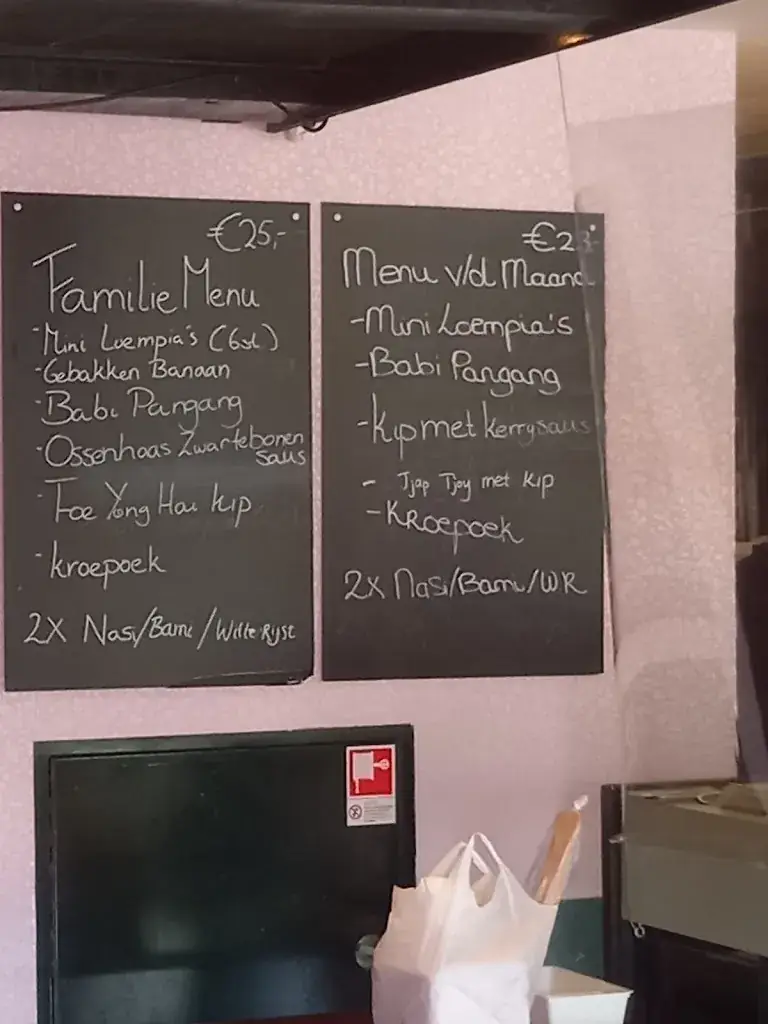 €25,-
Familie Menu
-Mini Loempia's (6st)
-Gebakken Banaan
-Babi Pangang
-Ossenhaas Zwartebonen
saus
-Foe Yong Hai kip
-kroepoek
2X Nasi/Bami/Witte Rijst
€23
Menu v/d Maand
-Mini Loempia's
-Babi Pangang
-Kip met kerrysaus
- Tjap Tjoy met kip
-KRoepoek
2X Nasi/Bami/WR